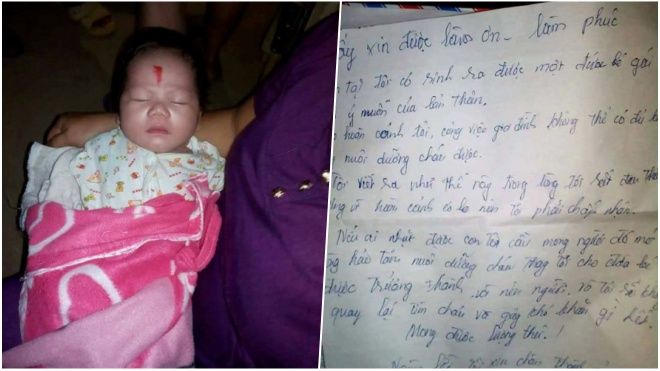 xin được làm ơn - làm phúc
tại tôi có sinh ra được một đứa bé gái
ý muốn của bản thân.
hoàn cảnh tôi, công việc gia đình không thể có đủ
nuôi dưỡng cháu được.
Tôi viết ra như thế này trong lòng tôi rất đau
vì hoàn cảnh nên tôi phải chấp nhận.
Nếu ai nhặt được con tôi cầu mong người đó mở
hảo tâm nuôi dưỡng cháu thay tôi cho đứa bé
được trưởng thành, nên người, và tôi sẽ
quay lại tìm cháu và gây khó khăn gì hết.
Mong được lượng thứ.!
xin chân thành